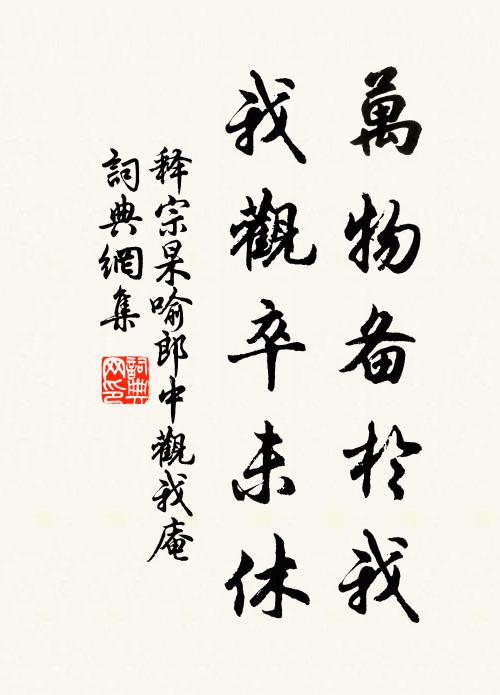 萬物备於我
我觀卒未休
释宗杲喻郎中觀我庵
詞典網集
詞典网印